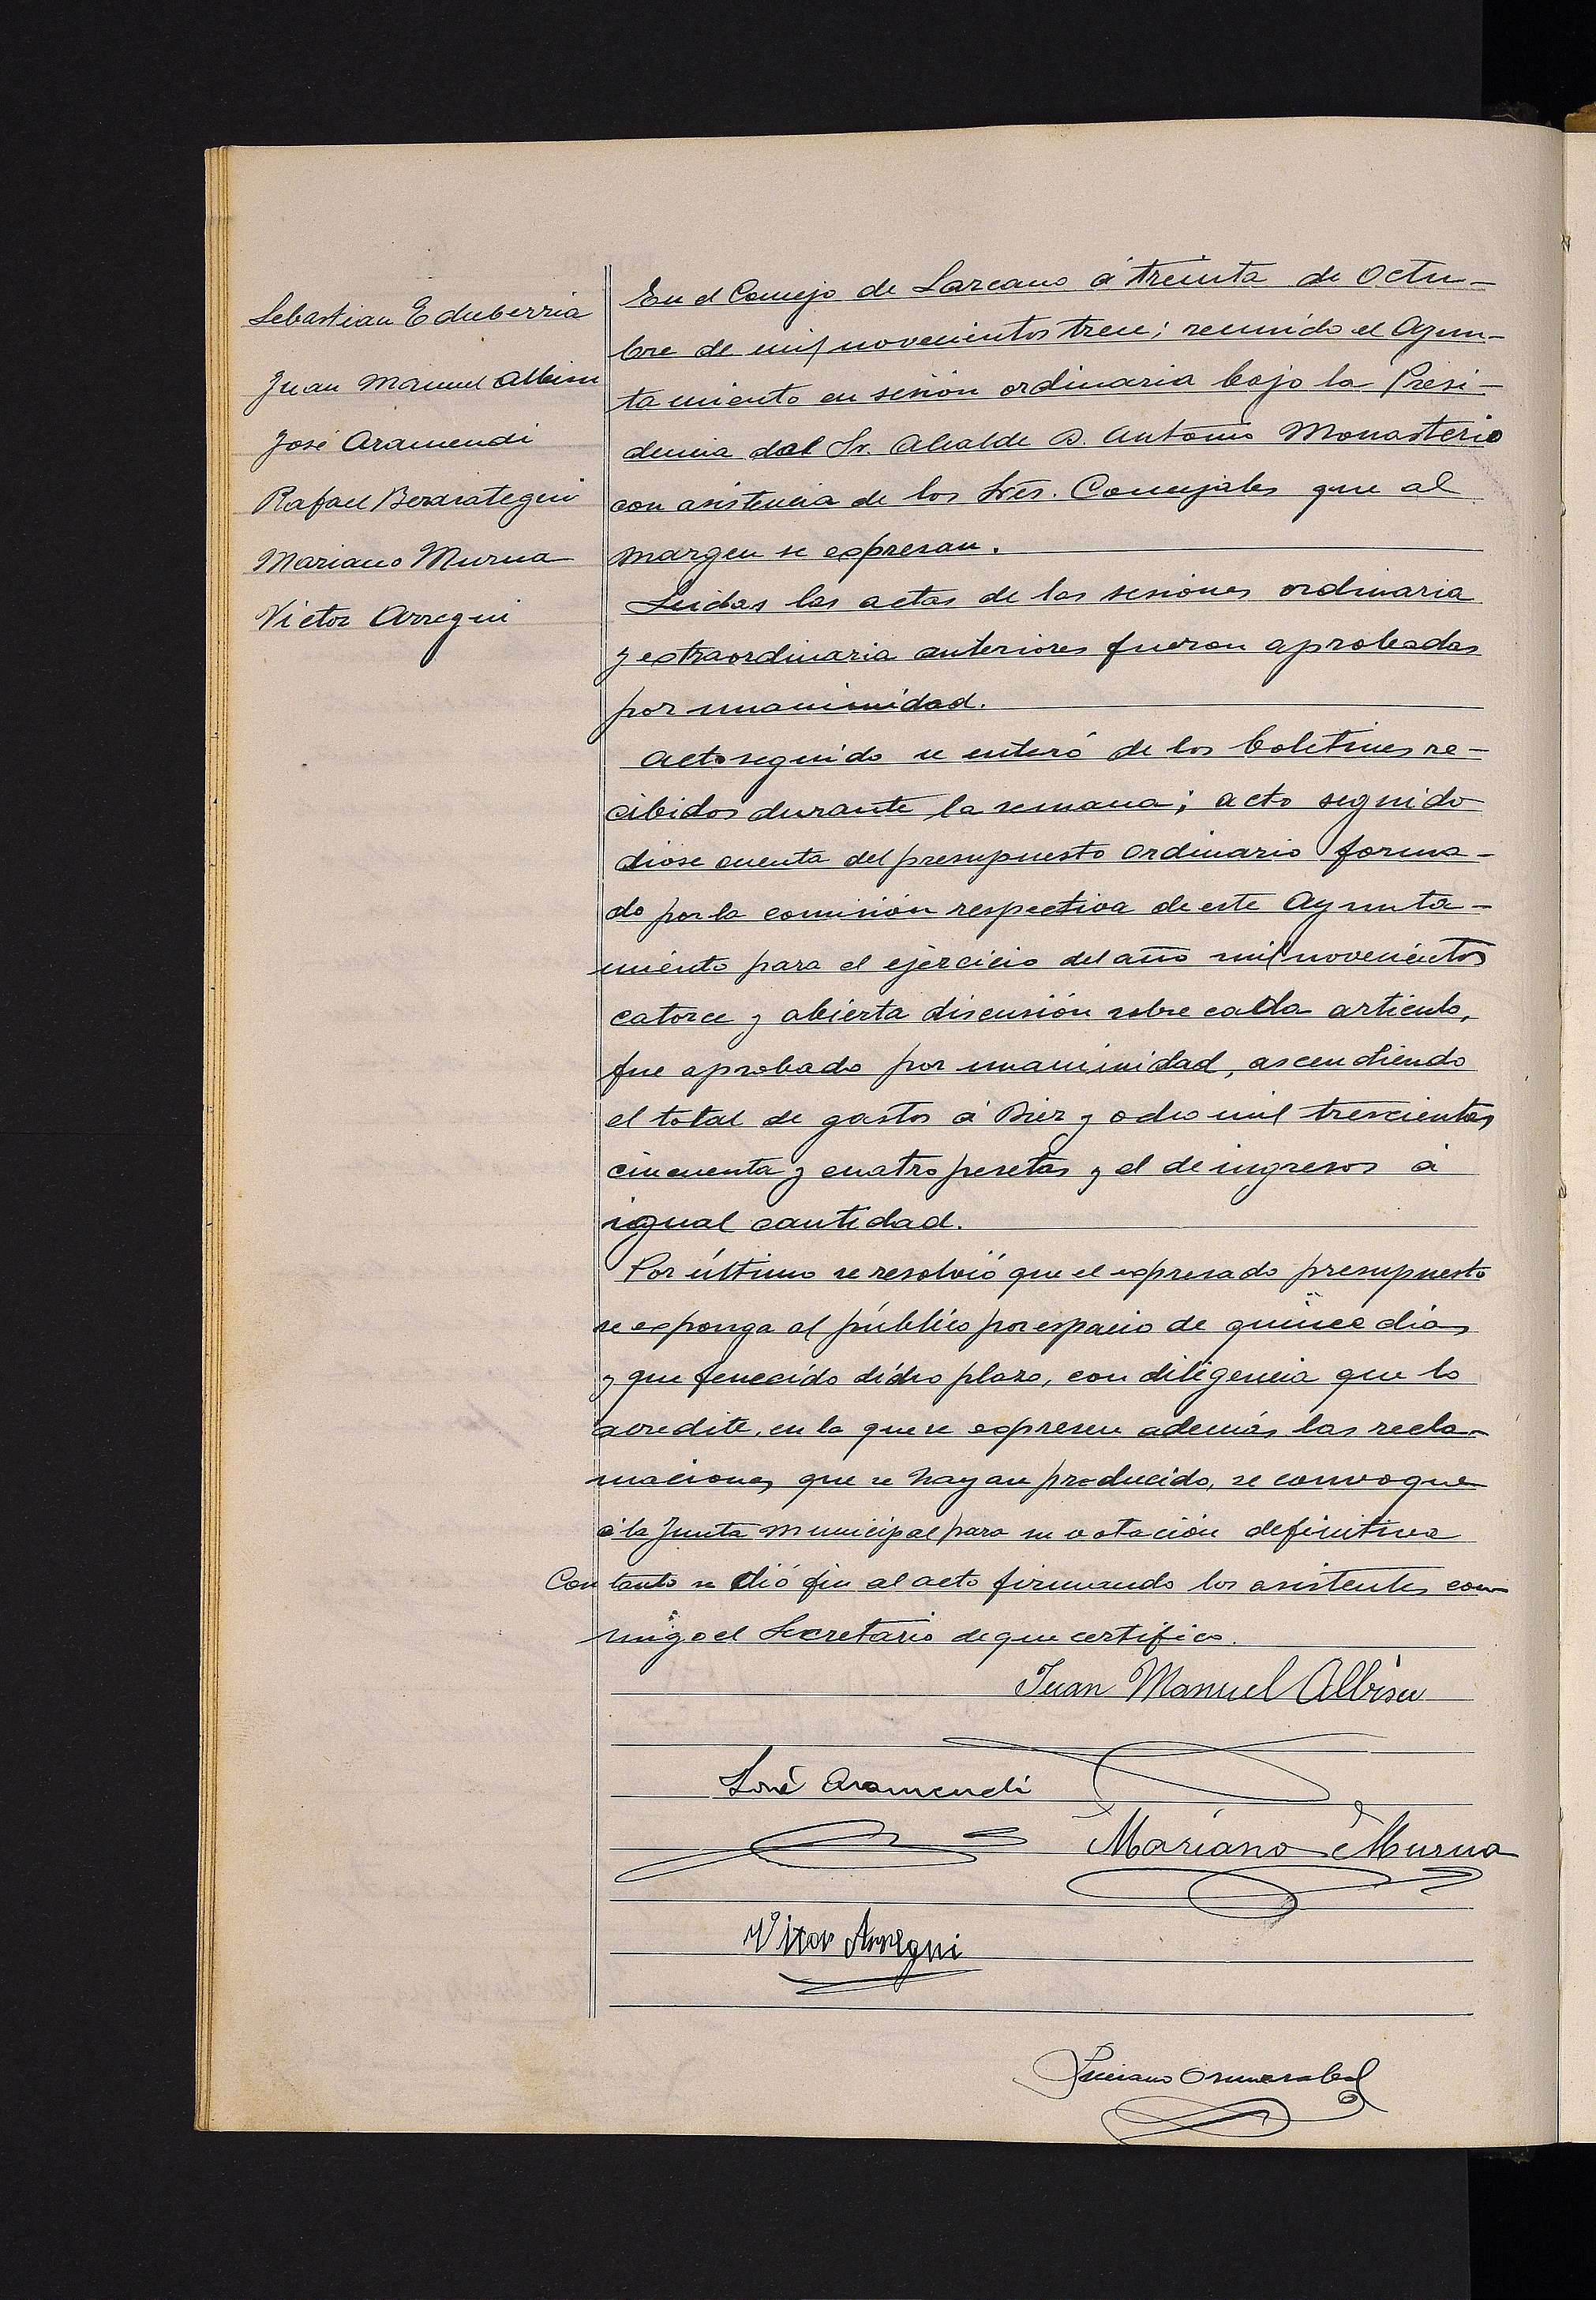 Sebastian Echeberria
Juan Manuel Albisu
José Aramendi
Rafael Berasategui
Mariano Murua
Victor Arregui
En el Concejo de Lazcano á treinta de Octu-
bre de mil novecientos trece; reunido el Ayun-
tamiento en sesión ordinaria bajo la Presi-
dencia del Sr. Alcalde D. Antonio Monasterio
con asistencia de los Sres. Concejales que al
margen se expresan.
Leidas las actas de las sesiones ordinaria
y extraordinaria anteriores fueron aprobadas
por unanimidad.
Acto seguido se enteró de los boletines re-
cibidos durante la semana; acto seguido
diose cuenta del presupuesto ordinario forma-
do por la comisión respectiva de este Ayunta-
miento para el ejercicio del año mil novecientos
catorce y abierta discusión sobre cada articulo,
fue aprobado por unanimidad, ascendiendo
el total de gastos á Diez y ocho mil trescientas
cincuenta y cuatro pesetas y el de ingresos á
igual cantidad.
Por último se resolvió que el expresado presupuesto
se exponga al público por espacio de quince dias
y que fenecido dicho plazo, con diligencia que lo
acredite, en la que se expresen además las recla-
maciones que se hayan producido, se convoque
á la Junta Municipal para su votación definitiva
Con tanto se dió fin al acto firmando los asistentes con-
migo el Secretario de que certifico.
Juan Manuel Albisu
José Aramendi
Mariano Murua
Vitor Arregui
Luciano